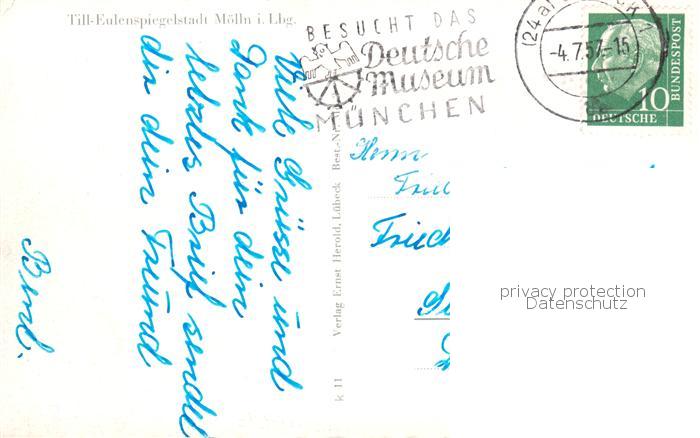 Till-Eulenspiegelstadt Mölln i. Lbg.
BESUCHT DAS
Deutsche
Museum
MÜNCHEN
(24a)
-4.7.57.-15
10
DEUTSCHE
BUNDESPOST
Viele Grüsse und
Dank für dein
liebes Brief sendet
dir dein Freund
Bernd.
k 11 Verlag Ernst Herold, Lübeck Best.-Nr.
Herrn
Fried
privacy protection
Datenschutz